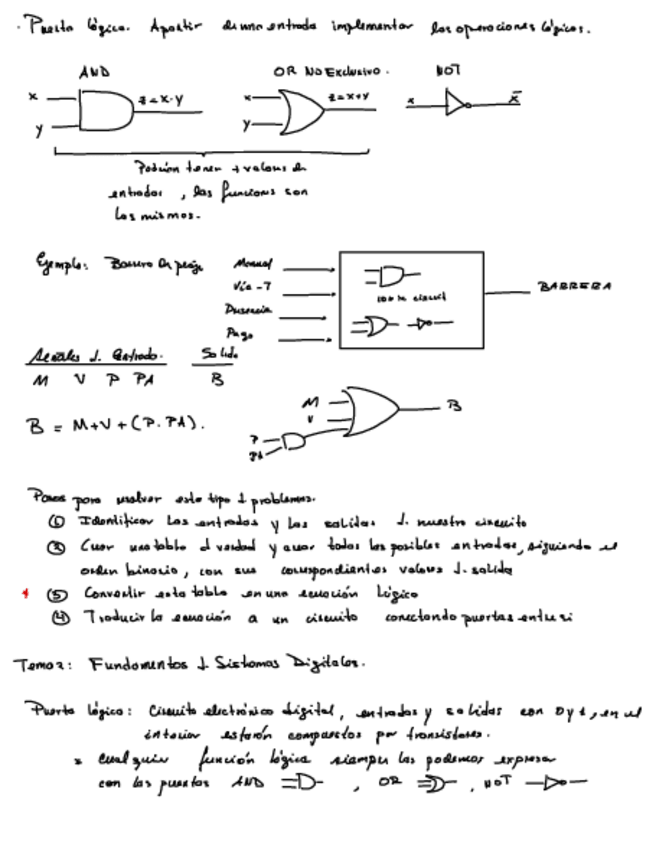 · Puerta lógica. Apartir de una entrada implementar las operaciones lógicas.
AND OR NO Exclusivo. NOT
x z = x·y x z = x+y x x̅
y y
Podrían tener + valores de
entradas, las funciones son
las mismas.
Ejemplo: Barrera de peaje Manual
Vía-T BARRERA
Presencia
Pago
Señales d. Entrada. Salida
M V P PA B
B = M+V+(P·PA).
M B
V
P
PA
Pasos para resolver este tipo d problemas.
① Identificar las entradas y las salidas d. nuestro circuito
② Crear una tabla d verdad y crear todas las posibles entradas, siguiendo el
orden binario, con sus correspondientes valores d. salida
* ③ Convertir esta tabla en una ecuación lógica
④ Traducir la ecuación a un circuito conectando puertas entre si
Tema 2: Fundamentos d. Sistemas Digitales.
Puerta lógica: Circuito electrónico digital, entradas y salidas con 0 y 1, en el
interior estarán compuestos por transistores.
* Cualquier función lógica siempre las podemos expresar
con las puertas AND , OR , NOT